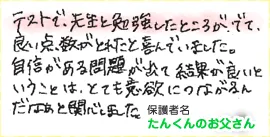 テストで、先生と勉強したところが、でて、
良い点数がとれたと喜んでいました。
自信がある問題が出て結果が良いと
いうことは、とても意欲につながるん
だなぁと関心しました。
保護者名
たんくんのお父さん